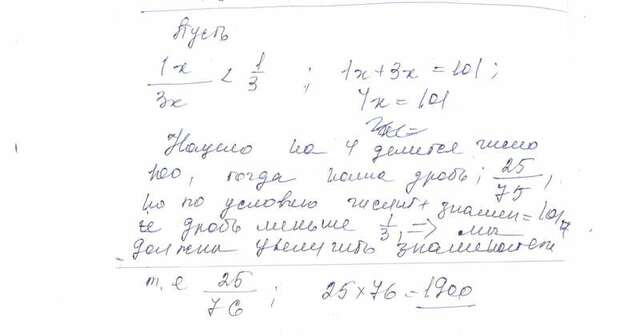 Пусть
1x/3x < 1/3 ; 1x+3x=101;
4x=101
Нацело на 4 делится число
100, тогда наша дробь; 25/75,
но по условию числит+знамен=101,
и дробь меньше 1/3, ⇒ мы
должны увеличить знаменатель
т.е 25/76 ; 25×76=1900